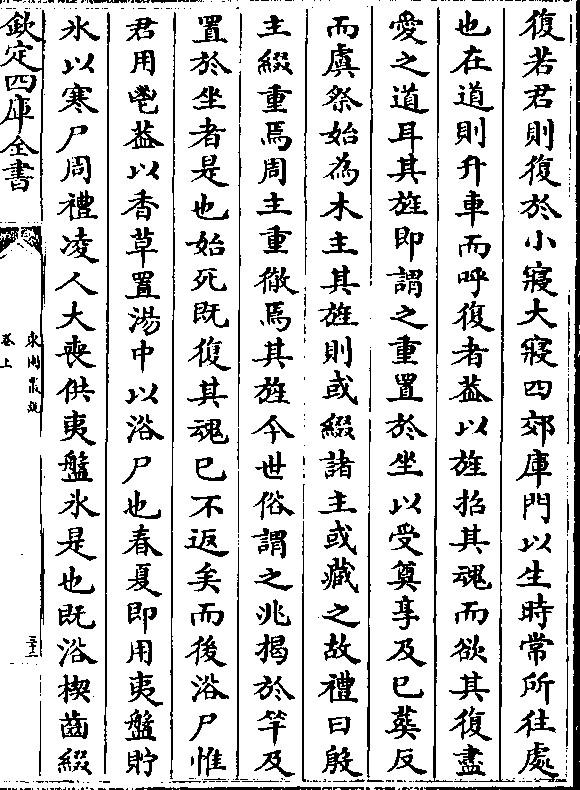 復若君則復於小寢大寢四郊庫門以生時常所往處
也在道則升車而呼復者葢以旌招其魂而欲其復盡
愛之道耳其旌即謂之重置於坐以受奠享及已葬反
而虞祭始為木主其旌則或綴諸主或藏之故禮曰殷
主綴重焉周主重徹焉其旌今世俗謂之兆揭於竿及
置於坐者是也始死既復其魂已不返矣而後浴尸惟
君用鬯葢以香草置湯中以浴尸也春夏即用夷盤貯
氷以寒尸周禮凌人大喪供夷盤氷是也既浴楔齒綴
欽定四庫全書
東園叢説
卷上
三十二